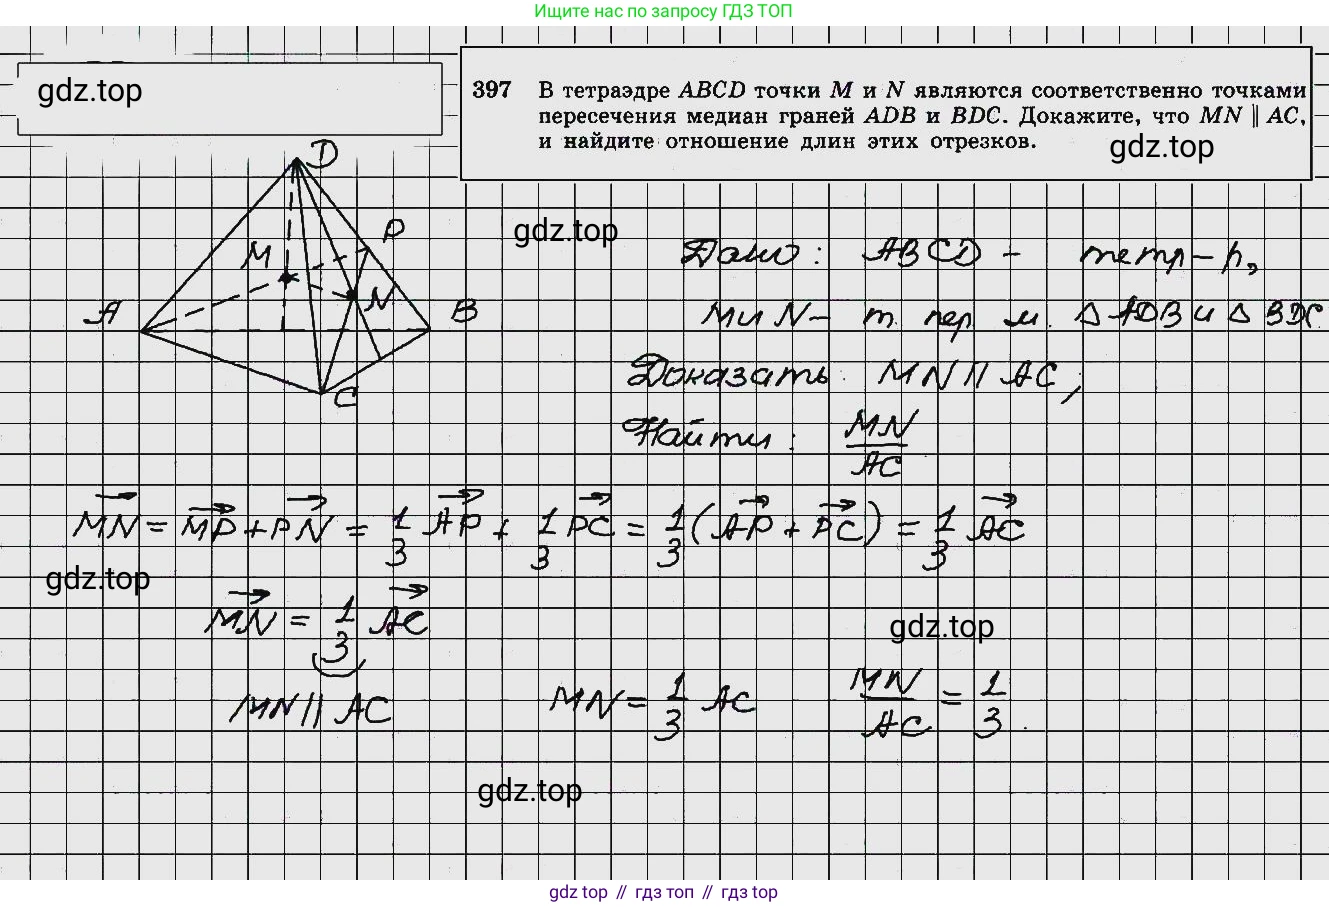 Ищите нас по запросу ГДЗ ТОП
gdz.top
397 В тетраэдре ABCD точки M и N являются соответственно точками
пересечения медиан граней ADB и BDC. Докажите, что MN ∥ AC,
и найдите отношение длин этих отрезков.
gdz.top
D
P
M
N
A
B
C
gdz.top
Дано: ABCD – тетр–р,
M и N – т. пер. м. △ ADB и △ BDC
Доказать: MN || AC,
Найти: MN/AC
MN→ = MP→ + PN→ = 1/3 AP→ + 1/3 PC→ = 1/3 (AP→ + PC→) = 1/3 AC→
gdz.top
MN→ = 1/3 AC→
gdz.top
MN || AC MN = 1/3 AC MN/AC = 1/3.
gdz.top
gdz top // гдз топ // gdz top